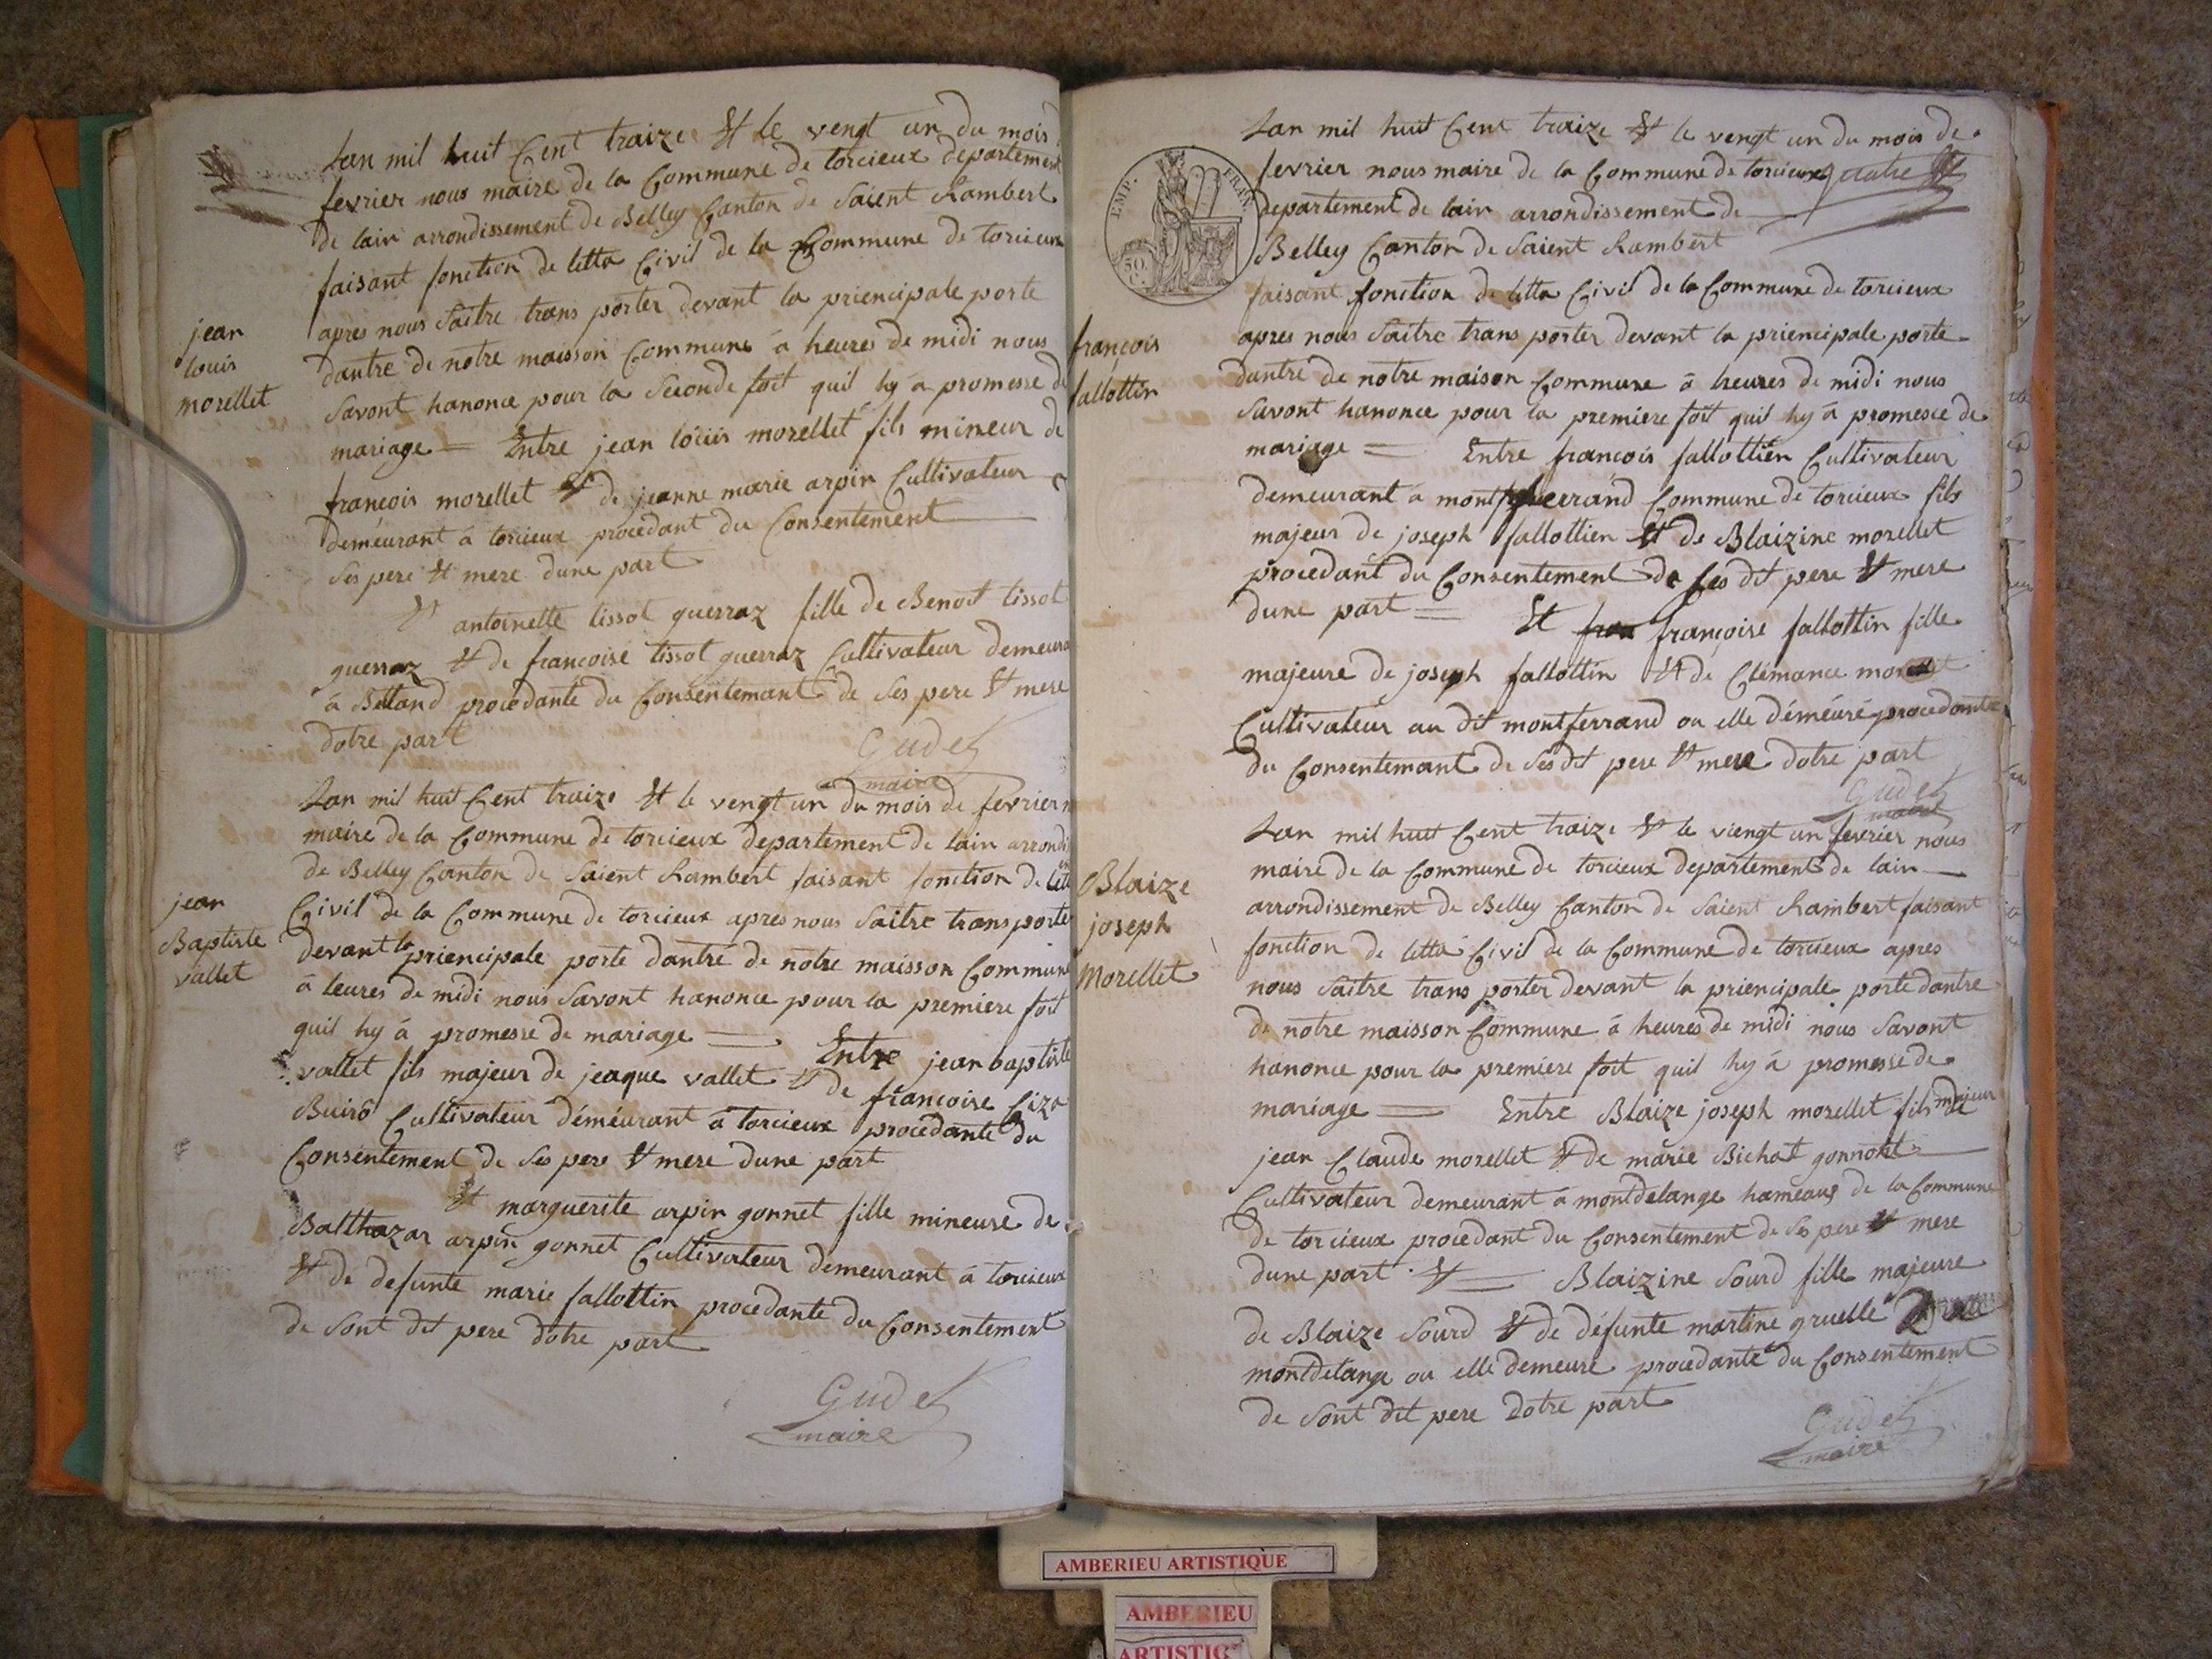 Lan mil huit Cent traize Et le vengt un du mois
fevrier nous maire de la Commune de torcieux departement
de lain arrondissement de Belley Canton de Saient Rambert
faisant fonction deletta Civil de la Commune de torcieux
apres nous saitre trans porter devant la priencipale porte
jean
louis
morellet
dantre de notre maisson Commune à heures de midi nous
savont hanonce pour la seconde foit quil hy à promesse de
mariage = Entre jean louis morellet fils mineur de
francois morellet Et de jeanne marie arpin Cultivateur
demeurant à torcieux procedant du Consentement
ses pere Et mere dune part
Et antoinette tissot guerraz fille de Benoit tissot
guerraz Et de francoise tissot guerraz Cultivateur demeura
à Bettand procedante du Consentemant de ses pere Et mere
dotre part
Gudet
maire
Lan mil huit Cent traize Et le vengt un du mois de fevrier
maire de la Commune de torcieux departement de lain arrondi
de Belley Canton de Saient Rambert faisant fonction de
jean
Baptiste
vallet
Civil de la Commune de torcieux apres nous saitre transporter
devant la priencipale porte dantre de notre maisson Commune
à leures de midi nous savont hanonce pour la premiere foit
quil hy à promesse de mariage = Entre jean baptiste
vallet fils majeur de jeaque vallet Et de francoise
Cultivateur démeurant à torcieux procedante du
Consentement de ses pere Et mere dune part
Et marguerite arpin gonnet fille mineure de
Balthazar arpin gonnet Cultivateur demeurant à torcieux
Et de defunte marie fallottin procedante du Consentement
de sont dit pere dotre part
Gudet
maire
Lan mil huit Cent traize Et le vengt un du mois de
EMP. FRAN.
50
C.
fevrier nous maire de la Commune de torcieux
departement de lain arrondissement de
Belley Canton de Saient Rambert
faisant fonction de letta Civil de la Commune de torcieux
francois
fallottin
apres nous saitre trans porter devant la priencipale porte
dantre de notre maison Commune à heures de midi nous
savont hanonce pour la premiere foit quil hy à promesce de
mariage = Entre francois fallottien Cultivateur
demeurant à montferrand Commune de torcieux fils
majeur de joseph fallottien Et de Blaizine morellet
procedant du Consentement de ses dit pere Et mere
dune part = Et françoise fallottin fille
majeure de joseph fallottin Et de Clémance
Cultivateur au dit montferrand ou elle démeure procedante
du Consentemant de ses dit pere Et mere dotre part
Gudet
maire
Lan mil huit Cent traize Et le viengt un fevrier nous
maire de la Commune de torcieux departement de lain
Blaize
joseph
Morellet
arrondissement de Belley Canton de Saient Rambert faisant
fonction de letta Civil de la Commune de torcieux apres
nous saitre trans porter devant la priencipale porte dantre
de notre maisson Commune à heures de midi nous savont
hanonce pour la premiere foit quil hy à promesse de
mariage = Entre Blaize joseph morellet fils majeur de
jean Claude morellet Et de marie Bichat gonnont
Cultivateur demeurant à montdelange hameaux de la Commune
de torcieux procedant du Consentement de ses pere Et mere
dune part Et = Blaizine Sourd fille majeure
de Blaize Sourd Et de défunte martine gruelle
montdelange ou elle demeure procedante du Consentement
de sont dit pere dotre part
Gudet
maire
AMBERIEU ARTISTIQUE
AMBERIEU